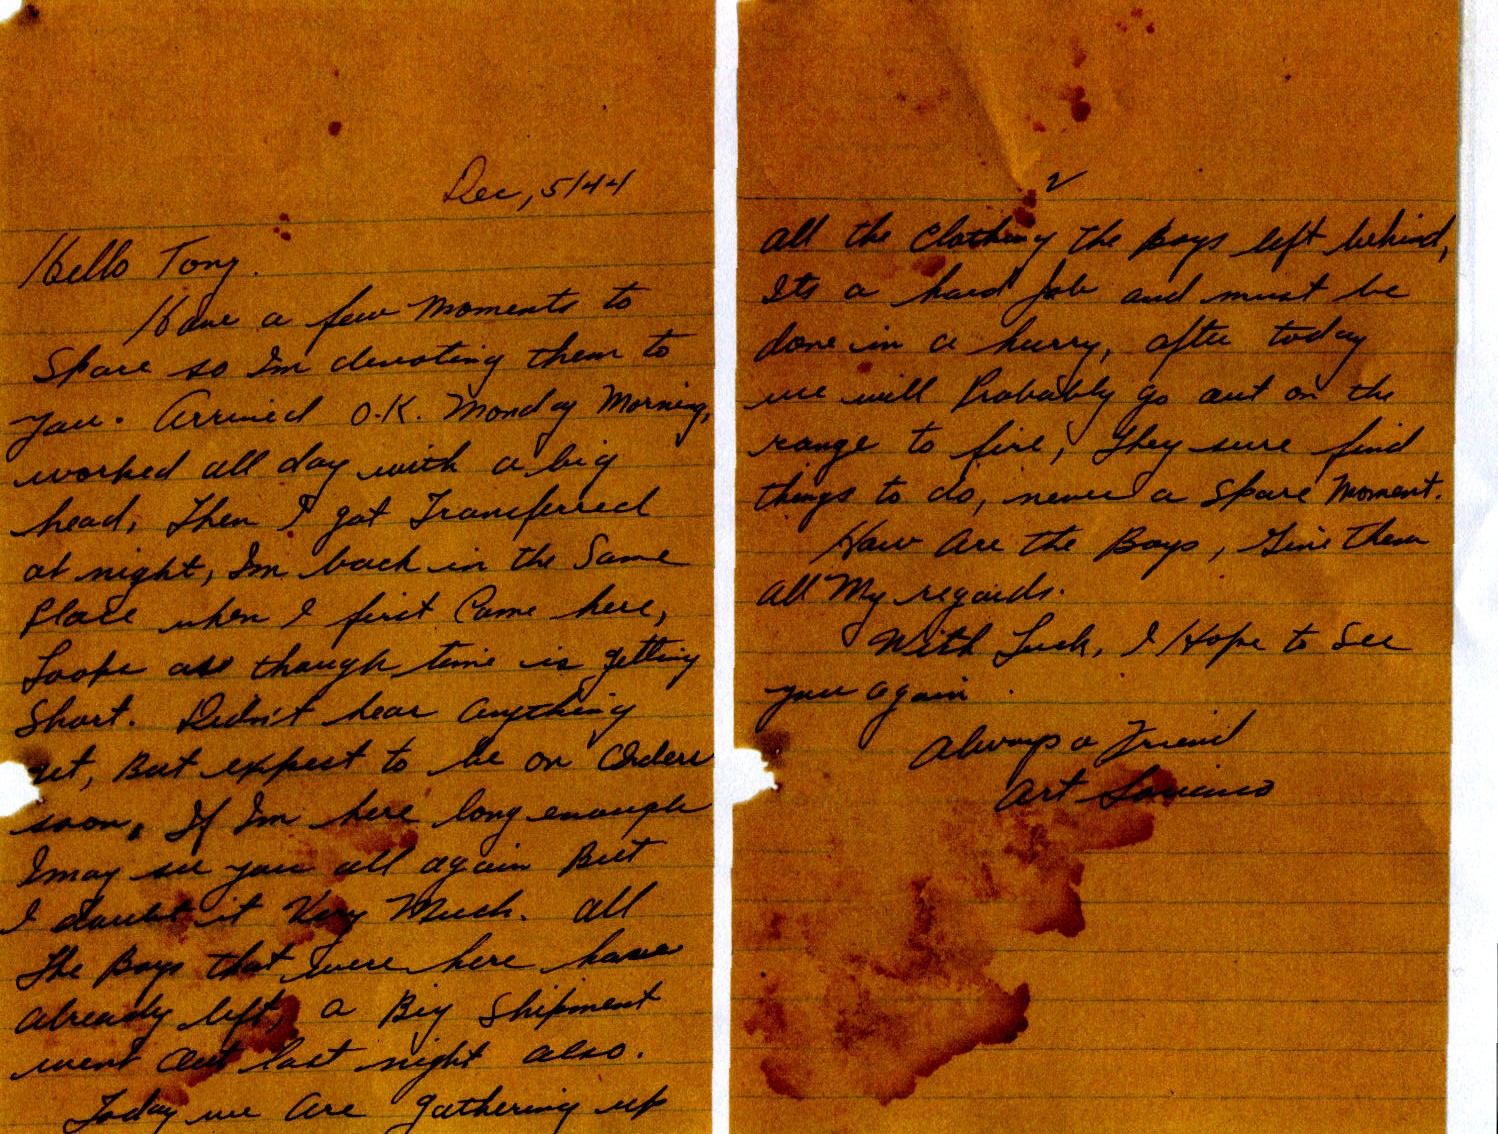 Dec, 5/44
Hello Tony.
Have a few Moments to
Spare so Im devoting them to
you. Arrived O.K. Monday Morning,
worked all day with a big
head, Then I got Transferred
at night, Im back in the Same
Place when I first Came here,
Looks as though time is getting
Short. Didn't hear anything
yet, But expect to be on Orders
soon, If Im here long enough
I may see you all again But
I doubt it Very Much. All
The Boys that were here have
already left, a Big Shipment
went Out last night also.
Today we are gathering up
2
all the Clothing the Boys left behind,
Its a hard Job and must be
done in a hurry, after today
we will Probably go out on the
range to fire, They sure find
things to do, never a Spare Moment.
How Are the Boys, Give them
all My regards.
With Luck, I Hope to See
you again.
Always a Friend
Art